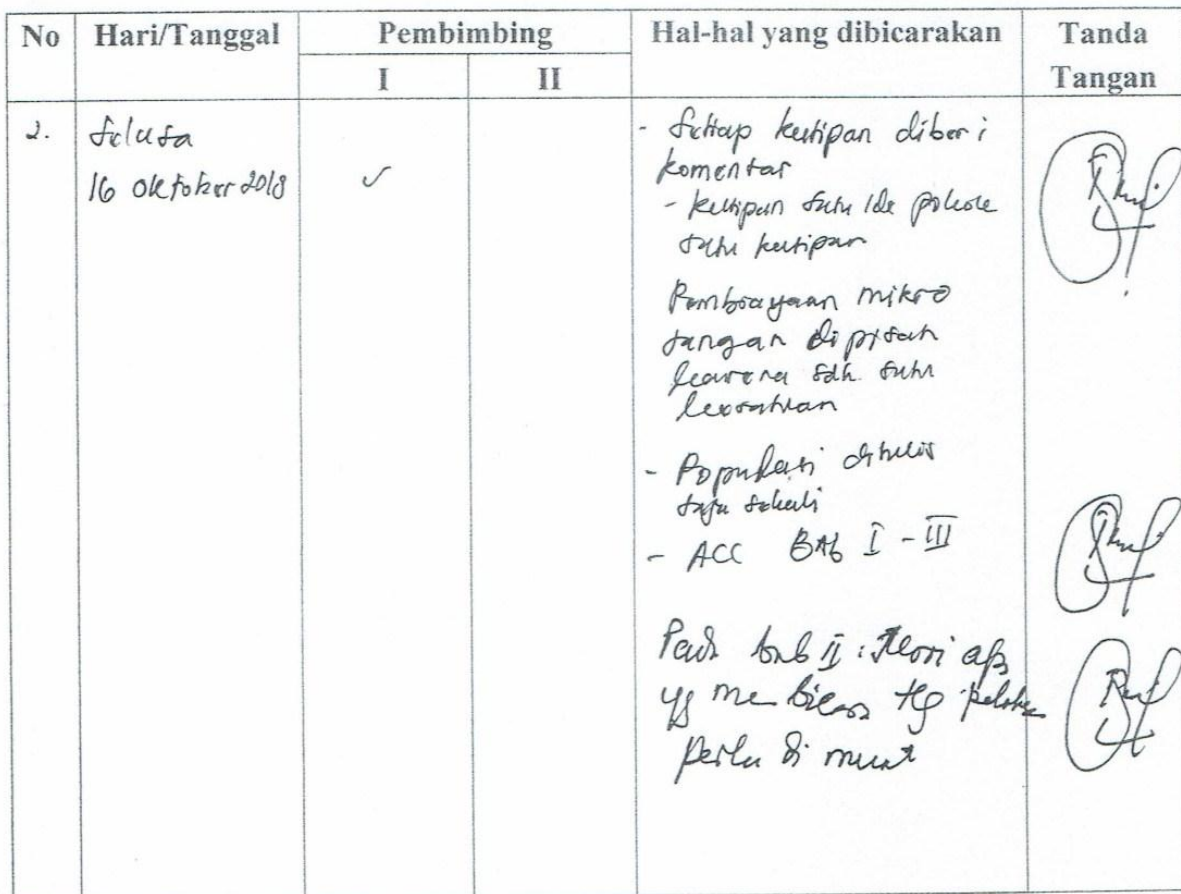 No Hari/Tanggal Pembimbing Hal-hal yang dibicarakan Tanda Tangan
I II
2. Selasa
16 Oktober 2018 ✓
- Setiap kutipan diberi
komentar
- kutipan satu ide pokok
satu kutipan
Pembiayaan mikro
jangan dipisah
karena sdh. satu
kesatuan
- Populasi ditulis
saja sekali
- ACC BAB I - III
Pada bab II : Teori
yg me tg
perlu di muat